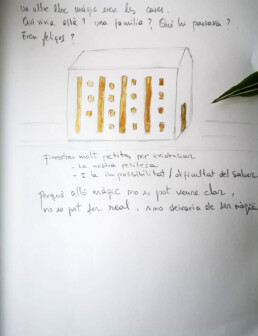 un altre lloc màgic eren les cases.
Qui vivia allà? una família? Què hi passava?
Eren feliços?
Finestres molt petites per evidenciar
- La nostra petitesa
- I la impossibilitat / dificultat del saber
Perquè allò màgic no es pot veure clar,
no es pot fer real, sino deixaria de ser màgic